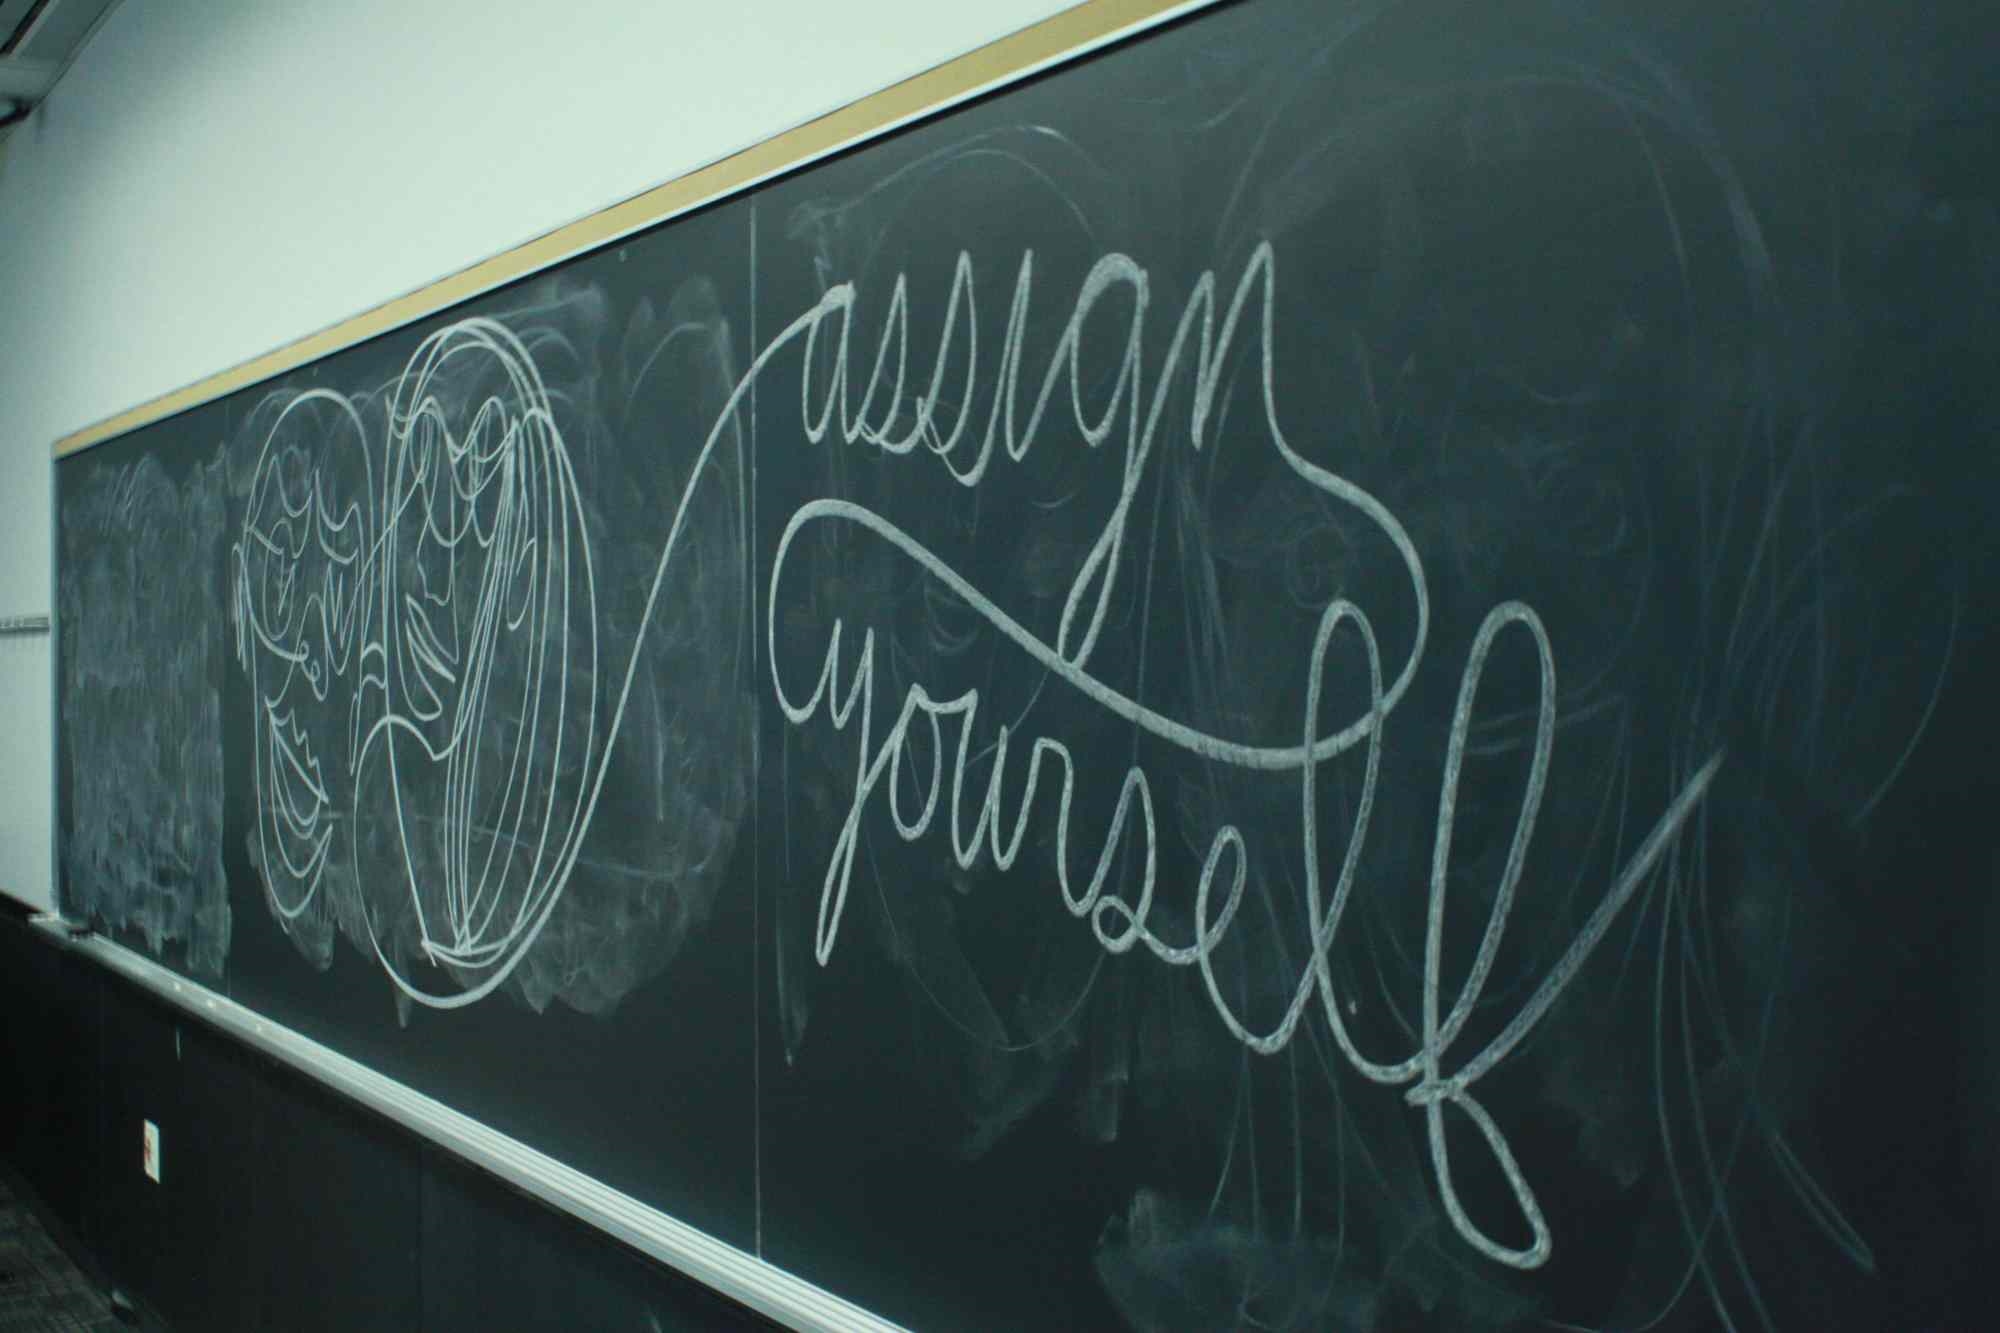 assign
yourself